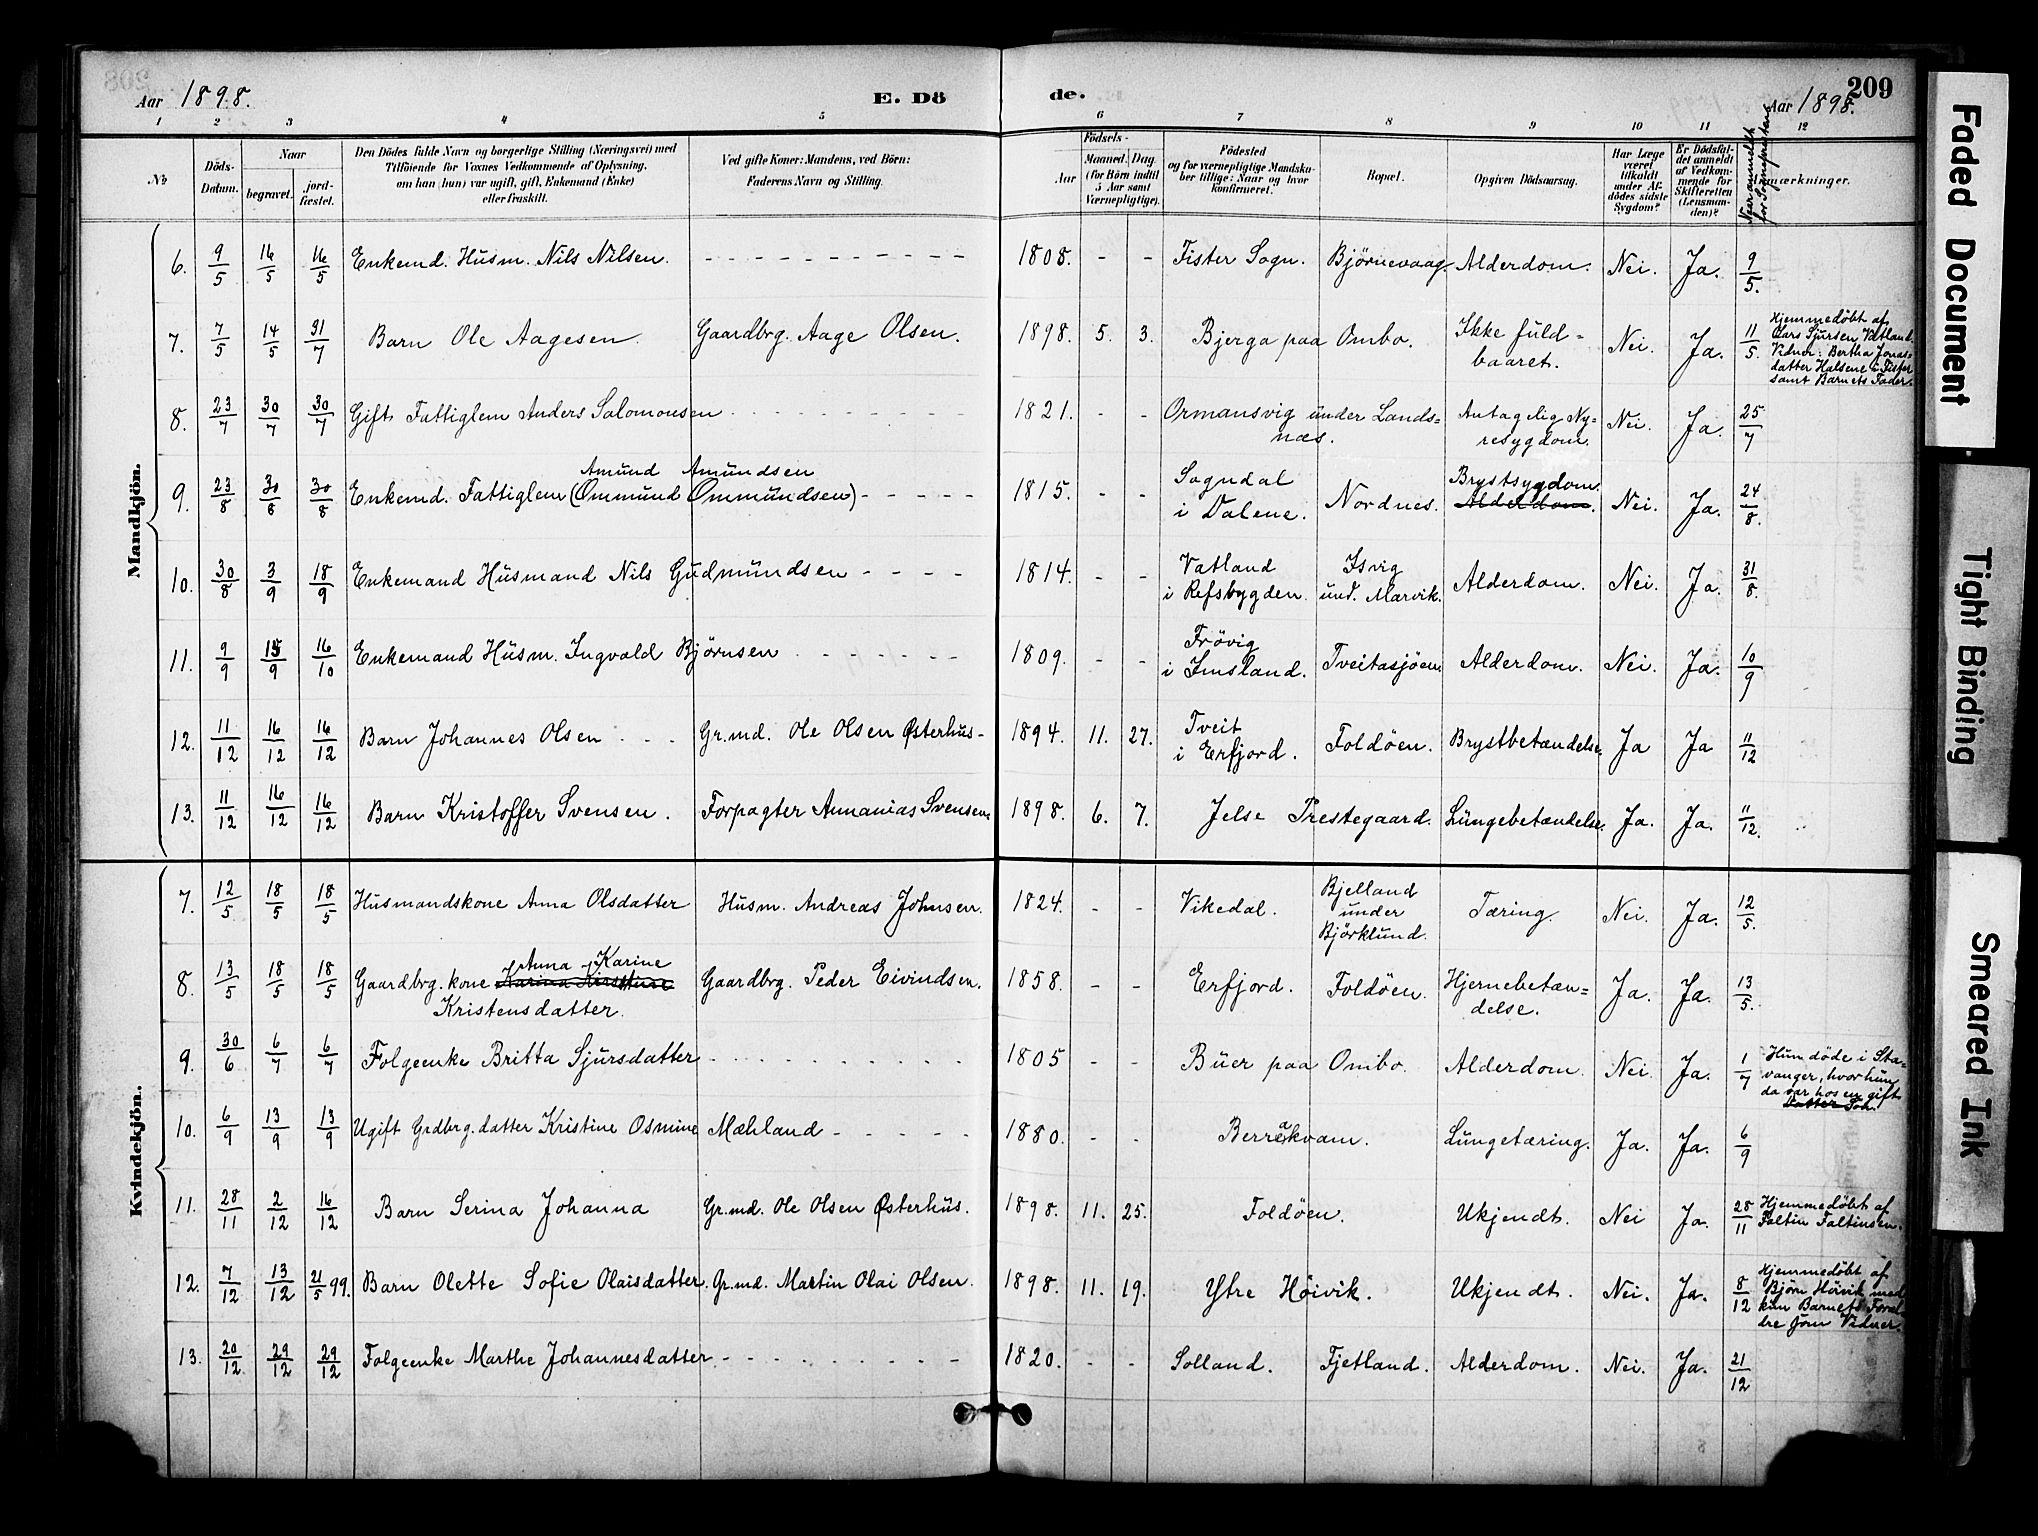 Aar 1898.
E. Dö
de.
209
Aar 1898.
1 2 3 4 5 6 7 8 9 10 11 12
No
Döds-
Datum.
Naar
begravet.
jord-
fæstet.
Den Dödes fulde Navn og borgerlige Stilling (Næringsvei) med
Tilföiende for Voxnes Vedkommende af Oplysning,
om han (hun) var ugift, gift, Enkemand (Enke)
eller fraskilt.
Ved gifte Koner: Mandens, ved Börn:
Faderens Navn og Stilling.
Födsels-
Aar
Maaned. Dag.
(for Börn indtil
5 Aar samt
Værnepligtige).
Födested
og for værnepligtige Mandskaber tillige: Naar og hvor
konfirmeret.
Bopæl.
Opgiven Dödsaarsag.
Har Læge
været
tilkaldt
under Af-
dödes sidste
Sygdom?
Er Dödsfal-
det anmeldt
af Vedkom-
mende for
Skifteretten
(Lensman-
den)?
Naar anmeldt
for Sognepræsten
mærkninger.
Mandkjön.
6. 9/5 16/5 16/5 Enkemd. Husm. Nils Nilsen. 1808. - - Fister Sogn. Bjørnevaag. Alderdom. Nei. Ja. 9/5.
7. 7/5 14/5 31/7 Barn Ole Aagesen. Gaardbrg. Aage Olsen. 1898. 5. 3. Bjerga paa Ombo. Ikke fuld=
baaret. Nei. Ja. 11/5. Hjemmedøbt af
Lars Sjursen Vatland.
Vidner: Bertha Jonas-
datter Halsene i Fister
samt Barnets Fader.
8. 23/7 30/7 30/7 Gift Fattiglem Anders Salomonsen 1821. - - Ormansvig under Lands=
næs. Antagelig Ny-
resygdom. Nei. Ja. 25/7
Amund Amundsen
9. 23/8 30/8 30/8 Enkemd. Fattiglem (Ommund Ommundsen) 1815. - - Sogndal
i Dalene. Nordnes. Brystsygdom.
Alderdom. Nei. Ja. 24/8.
10. 30/8 3/9 18/9 Enkemand Husmand Nils Gudmundsen 1814. - - Vatland
i Refsbygden. Isvig
und. Marvik. Alderdom. Nei. Ja. 31/8.
11. 9/9 15/9 16/10 Enkemand Husm. Ingvald Bjørnsen 1809. - - Frövig
i Imsland. Tveitasjöen Alderdom. Nei. Ja. 10/9
12. 11/12 16/12 16/12 Barn Johannes Olsen Gr.md. Ole Olsen Østerhus 1894. 11. 27. Tveit
i Erfjord. Foldøen. Brystbetændelse. Ja Ja 11/12
13. 11/12 16/12 16/12 Barn Kristoffer Svensen. Forpagter Annanias Svensen 1898. 6. 7. Jelse Prestegaard. Lungebetændelse. Ja. Ja. 11/12.
Kvindekjön.
7. 12/5 18/5 18/5 Husmandskone Anna Olsdatter Husm. Andreas Johnsen. 1824. - - Vikedal. Bjelland
under
Björklund. Tæring. Nei. Ja. 12/5.
Anna Karine
8. 13/5 18/5 18/5 Gaardbrg. kone Karina Kirstine
Kristensdatter. Gaardbrg. Peder Eivindsen. 1858. - - Erfjord. Foldøen. Hjernebetæn=
delse. Ja. Ja. 13/5.
9. 30/6 6/7 6/7 Folgeenke Britta Sjursdatter 1805 - - Buer paa Ombo. Alderdom. Nei. Ja. 1/7 Hun døde i Sta-
vanger, hvor hun
da var hos en gift
Datter Søn.
10. 6/9 13/9 13/9 Ugift Grdbrg. datter Kristine Osmine Mæhland 1880. - - Berrakvam. Lungetæring. Ja. Ja. 6/9
11. 28/11 2/12 16/12 Barn Serina Johanna Gr.md. Ole Olsen Østerhus. 1898. 11. 25. Foldøen. Ukjendt. Nei Ja. 28/11 Hjemmedøbt af
Faltin Faltinsen.
12. 7/12 13/12 21/5 99. Barn Olette Sofie Olaisdatter. Gr.md. Martin Olai Olsen. 1898. 11. 19. Ytre Höivik. Ukjendt. Nei. Ja. 8/12 Hjemmedøbt af
Bjørn Höivik med
kun Barnets Foræl-
dre som Vidner.
13. 20/12 29/12 29/12 Folgeenke Marthe Johannesdatter 1820. - - Solland. Fjetland. Alderdom. Nei. Ja. 21/12
Faded Document
Tight Binding
Smeared Ink